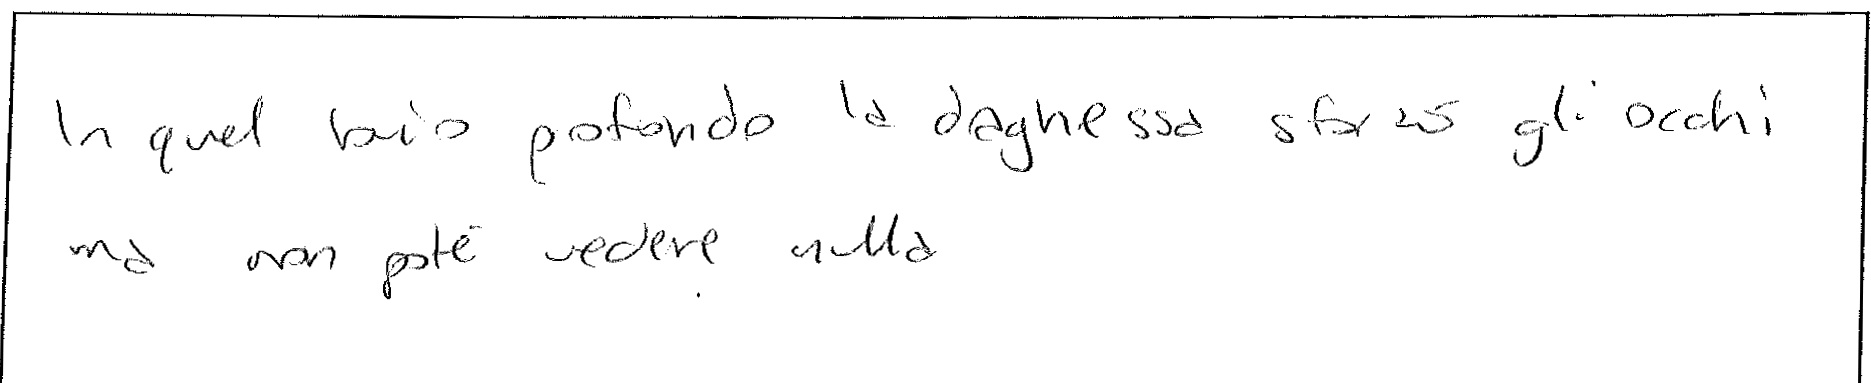 In quel buio pofondo la daghessa sforzò gli occhi
ma non poté vedere nulla